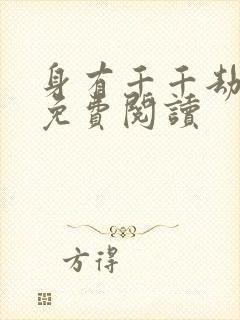 身有千千劫
免費閱讀
方得